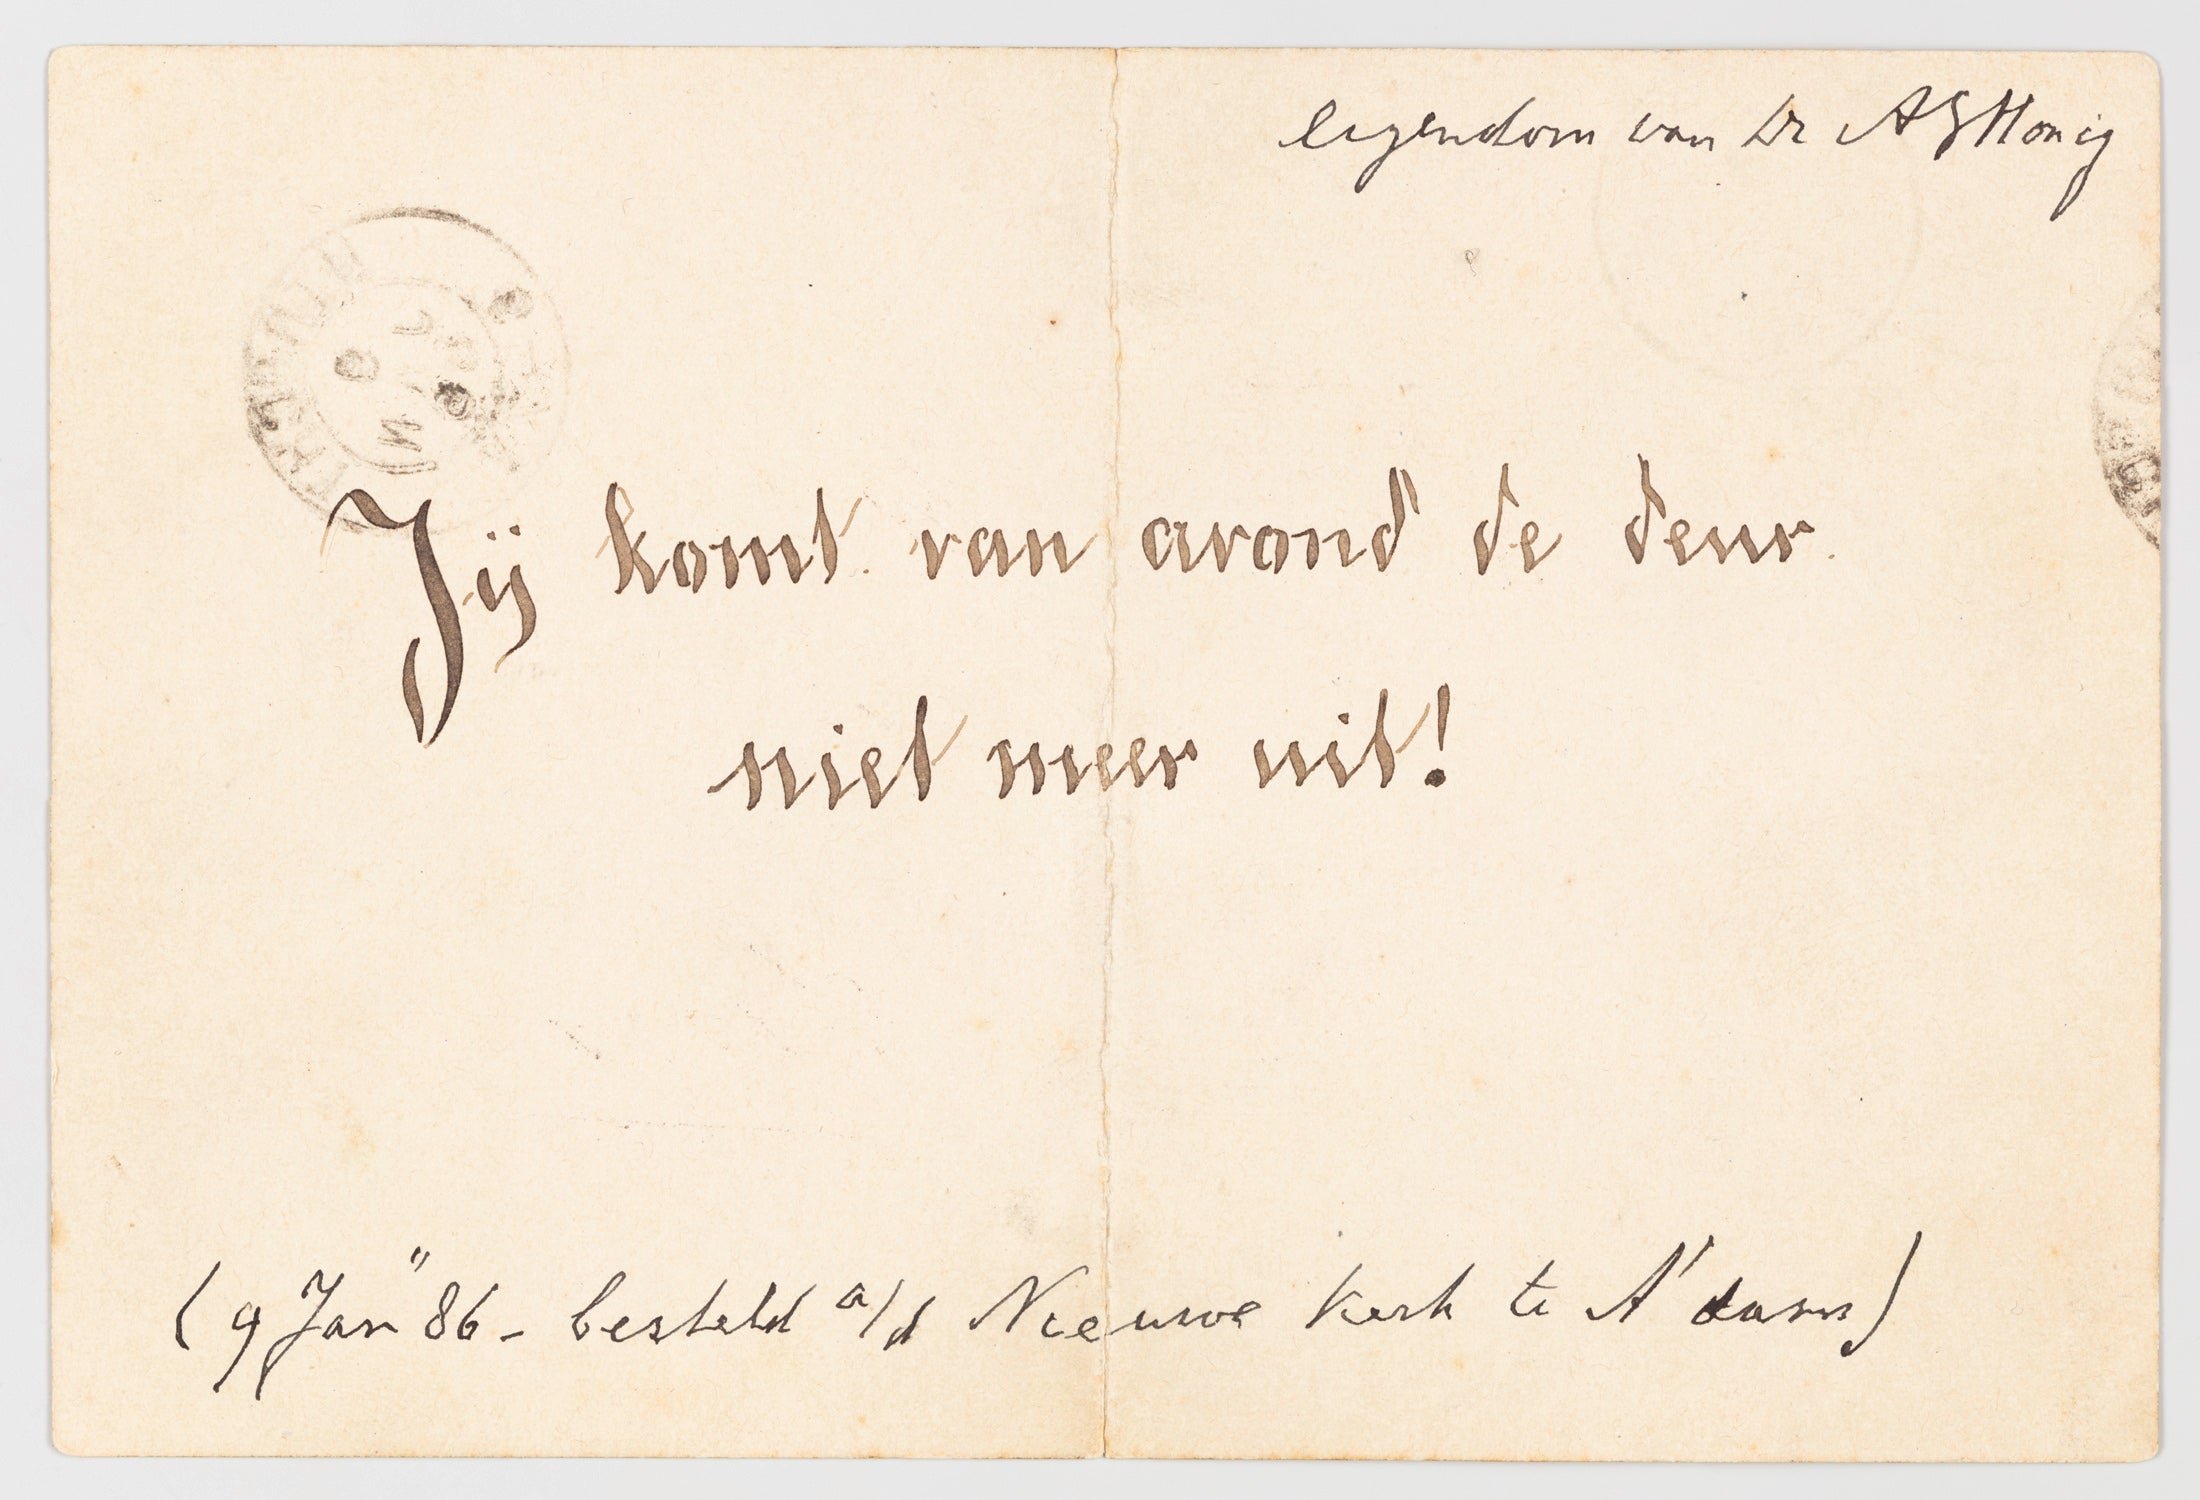 eigendom van Dr A G Honig
Jij komt van avond de deur
niet meer uit!
(9 Jan" 86 - besteld a/d Nieuwe Kerk te A'dam)